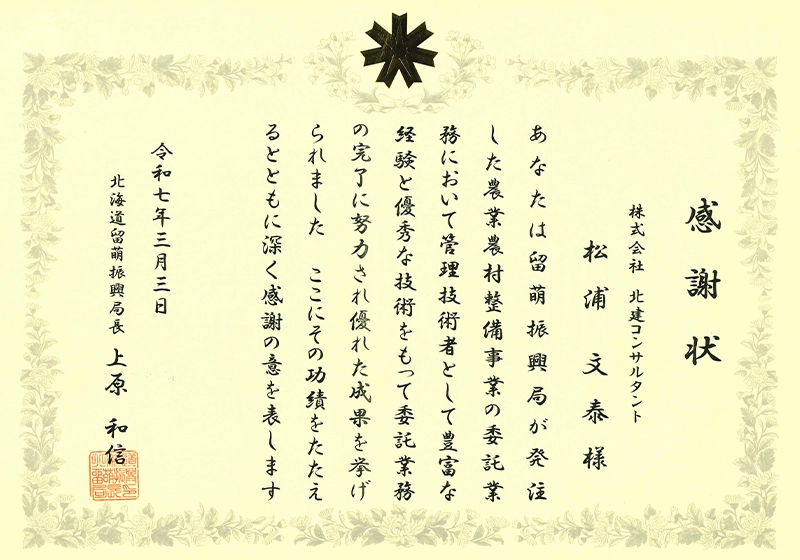 感謝状
株式会社 北建コンサルタント
松浦文泰様
あなたは留萌振興局が発注
した農業農村整備事業の委託業
務において管理技術者として豊富な
経験と優秀な技術をもって委託業務
の完了に努力され優れた成果を挙げ
られました ここにその功績をたたえ
るとともに深く感謝の意を表します
令和七年三月三日
北海道留萌振興局長 上原和信